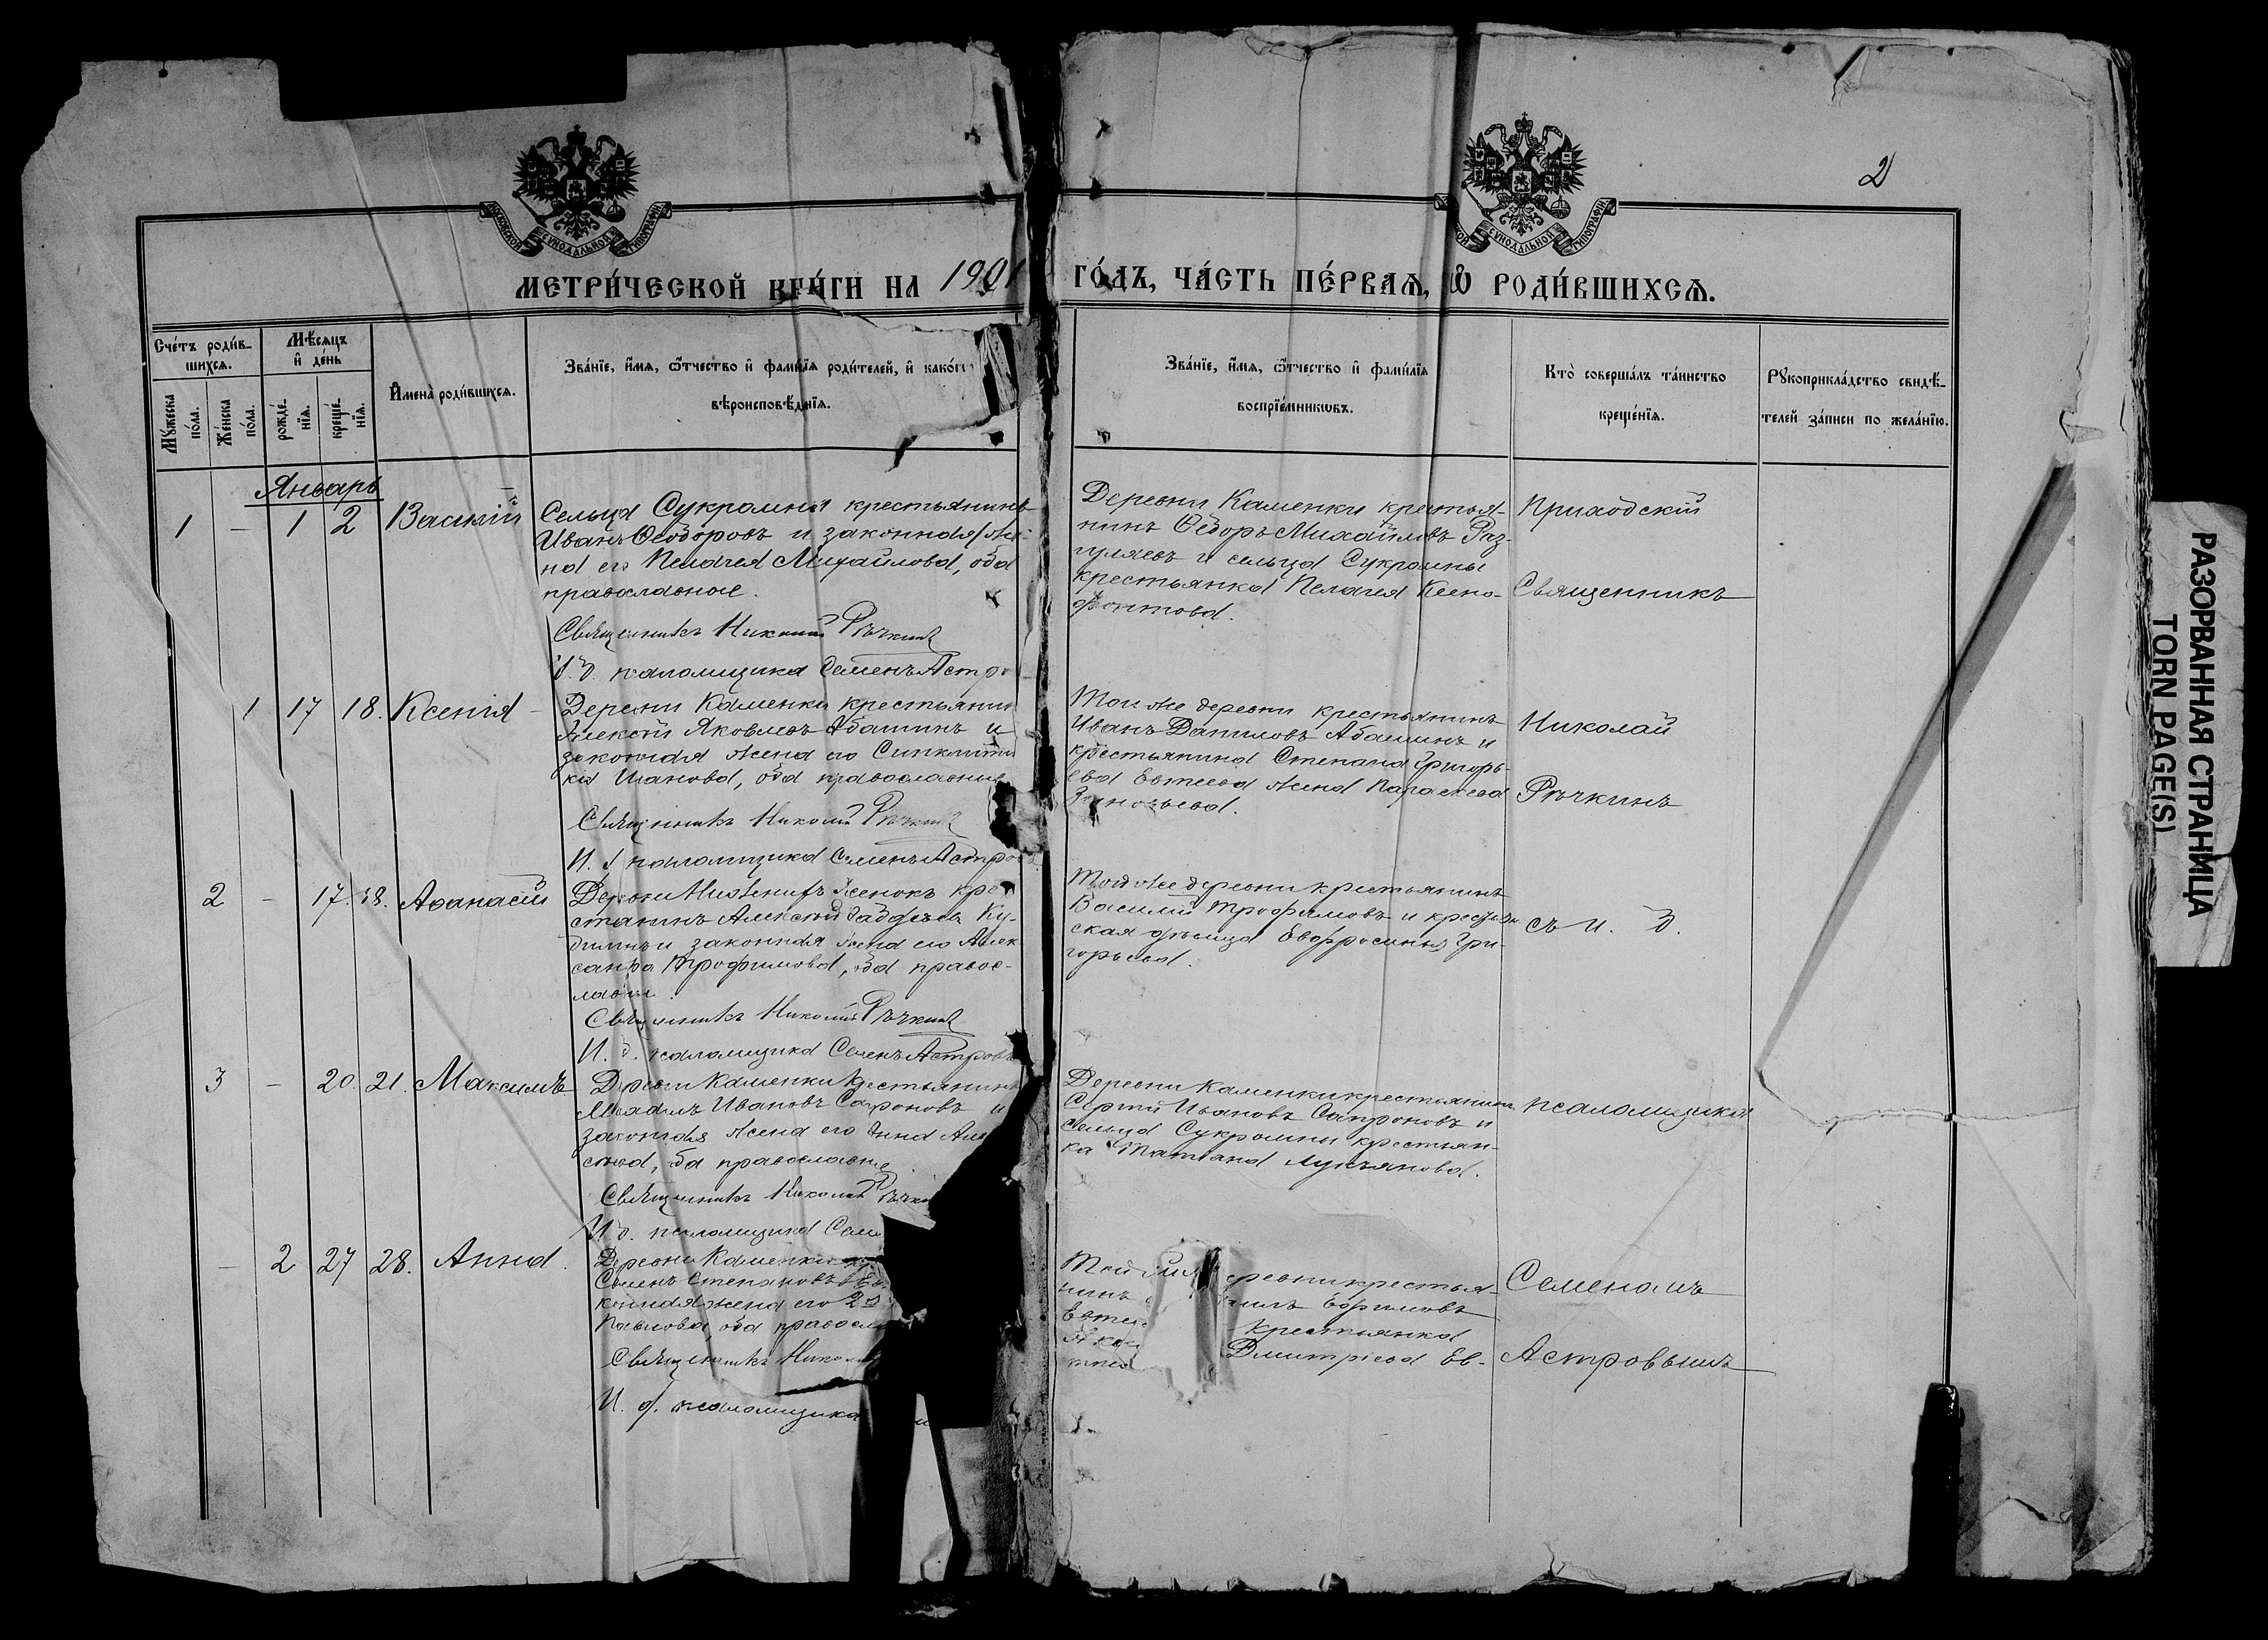 2
МОСКОВСКОЙ СѴНОДАЛЬНОЙ ТИПОГРАФІИ
СѴНОДАЛЬНОЙ ТИПОГРАФІИ
МЕТРИ́ЧЕСКОЙ КНИ́ГИ НА 1901 ГО́ДЪ, ЧА́СТЬ ПЕ́РВАѦ, Ѡ҆ РОДИ́ВШИХСѦ.
Сче́тъ роди́в-
шихсѧ.
Мꙋ́жеска
по́ла.
Же́нска
по́ла.
Мѣ́сѧцъ
и҆ де́нь
рожде́-
нїѧ.
креще́-
нїѧ.
И҆мена̀ роди́вшихсѧ.
Зва́нїе, и҆́мѧ, ѻ҆́тчество и҆ фами́лїѧ роди́телей, и҆ како́гѡ
вѣроисповѣ́данїѧ.
Зва́нїе, и҆́мѧ, ѻ҆́тчество и҆ фами́лїѧ
воспрїе́мникѡвъ.
Кто̀ соверша́лъ та́инство
креще́нїѧ.
Рꙋкоприкла́дство свидѣ́-
телей за́писи по жела́нїю.
Январь
1 — 1 2 Василій
Сельца Сукромны крестьянинъ
Иванъ Ѳеодоровъ и законная же-
на его Пелагея Михайлова, оба
православные.
Священникъ Николай Рѣчкинъ
И. д. псаломщика Семенъ Астро
Деревни Каменки крестья-
нинъ Ѳедоръ Михайловъ Раз-
гуляевъ и сельца Сукромны
крестьянка Пелагея Ксено-
фонтова.
Приходскій
Священникъ
1 17 18. Ксенія
Деревни Каменки крестьянин
Алексѣй Яковлевъ Абашинъ и
законная жена его Синклити
кія Иванова, оба православные
Священникъ Николай Рѣчкинъ
И. д. псаломщика Семенъ Астро
Той же деревни крестьянинъ
Иванъ Даниловъ Абашинъ и
крестьянина Степана Григорь-
ева Евтеева жена Параскева
Зиновьева.
Николай
Рѣчкинъ
2 — 17. 18. Аѳанасій
Деревни Нижнихъ Ясенокъ кре
стьянинъ Алексѣй Фаддѣевъ Ку-
димъ и законная жена его Алек
сандра Трофимова, оба правос-
лавные.
Священникъ Николай Рѣчкинъ
И. д. псаломщика Семенъ Астровъ
Той же деревни крестьянинъ
Василій Трофимовъ и крестьян
ская дѣвица Евфросинья Гри-
горьева.
съ и. д.
3 — 20. 21. Максимъ
Деревни Каменки крестьянинъ
Михаилъ Ивановъ Сафроновъ и
законная жена его Анна Але
сѣева, оба православные.
Священникъ Николай Рѣчки
И. д. псаломщика Семе
Деревни Каменки крестьянинъ
Сергѣй Ивановъ Сапроновъ и
сельца Сукромны крестьян-
ка Татіана Лукьянова.
псаломщика
— 2 27 28. Анна.
Деревни Каменки
Семенъ Степановъ Ев
конная жена его
Павлова, оба правосла
Священникъ Никола
И. д. псаломщика
Той же деревни крестья-
нинъ Ефимовъ
Евте крестьянка
Дмитріева Ев-
Семеномъ
Астровымъ
РАЗОРВАННАЯ СТРАНИЦА
TORN PAGE(S)